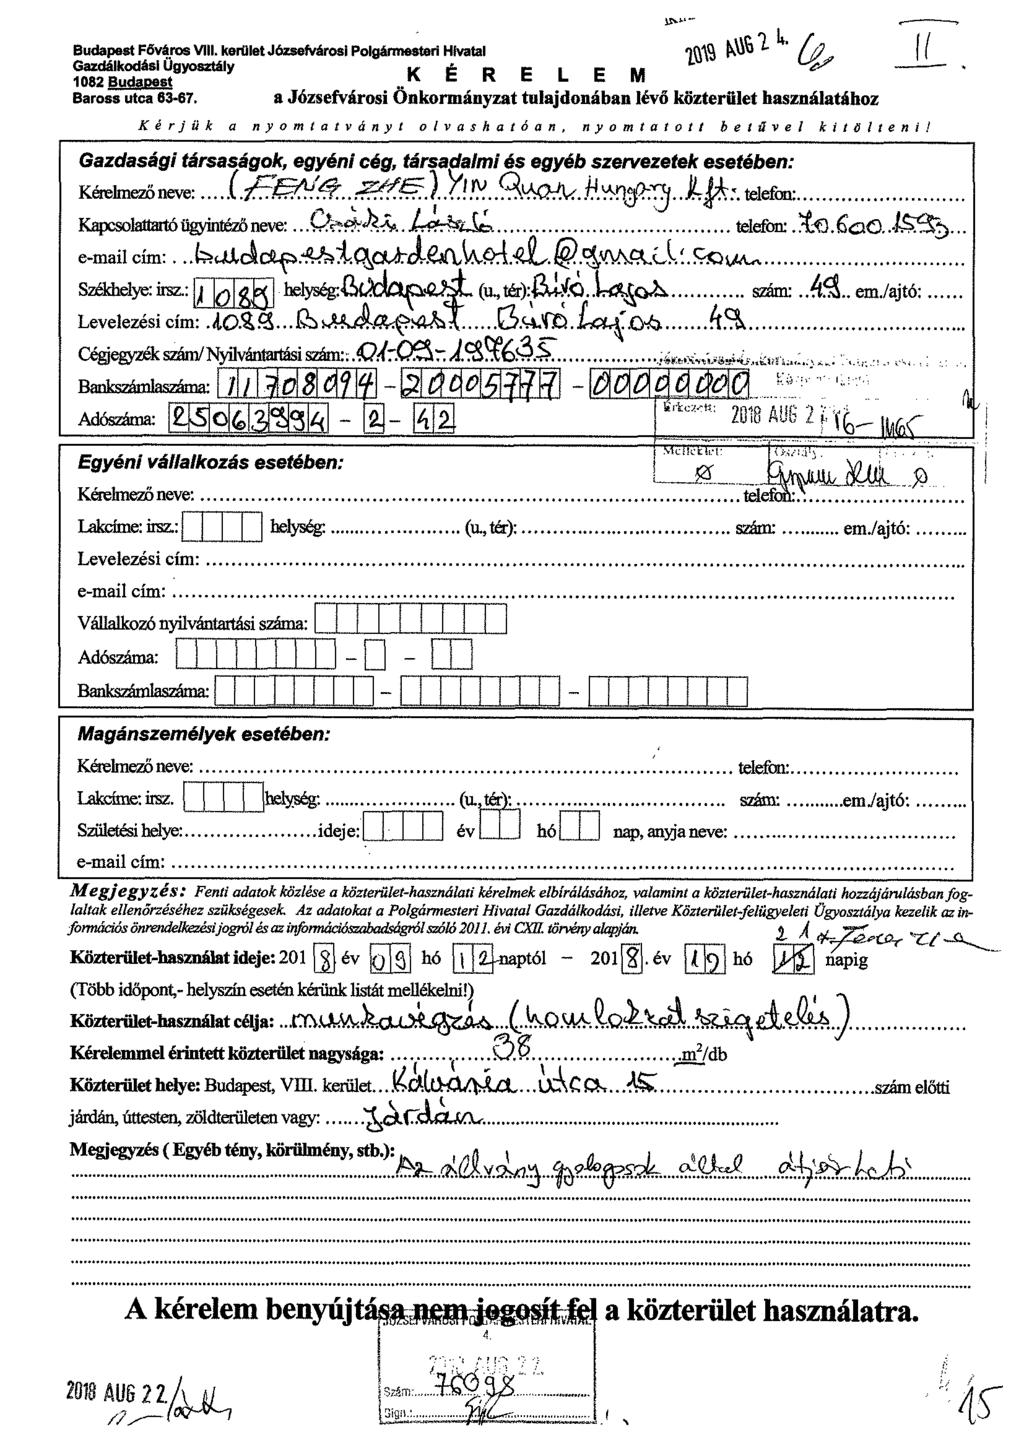 2019 AUG 24. II
Budapest Főváros VIII. kerület Józsefvárosi Polgármesteri Hivatal
Gazdálkodási Ügyosztály
1082 Budapest
Baross utca 63-67.
K É R E L E M
a Józsefvárosi Önkormányzat tulajdonában lévő közterület használatához
Kérjük a nyomtatványt olvashatóan, nyomtatott betűvel kitölteni!
Gazdasági társaságok, egyéni cég, társadalmi és egyéb szervezetek esetében:
Kérelmező neve: (FENG ZHE) YIN Quan Hungary Kft. telefon:
Kapcsolattartó ügyintéző neve: Csáki László telefon: 70.600.1593
e-mail cím: budapestgardenhotel@gmail.com
Székhelye: irsz.: 1089 helység: Budapest (u., tér): Bíró Lajos szám: 49 em./ajtó:
Levelezési cím: 1089 Budapest Bíró Lajos 49
Cégjegyzék szám/ Nyilvántartási szám: 01-09-197635
Bankszámlaszáma: 11708094 - 20005777 - 00000000
Adószáma: 25063994 - 2 - 42
Érkezett: 2018 AUG 2
Melléklet: Ø Osztály:
Egyéni vállalkozás esetében:
Kérelmező neve: telefon:
Lakcíme: irsz.: helység: (u., tér): szám: em./ajtó:
Levelezési cím:
e-mail cím:
Vállalkozó nyilvántartási száma:
Adószáma: - -
Bankszámlaszáma: - -
Magánszemélyek esetében:
Kérelmező neve: telefon:
Lakcíme: irsz. helység: (u., tér): szám: em./ajtó:
Születési helye: ideje: év hó nap, anyja neve:
e-mail cím:
Megjegyzés: Fenti adatok közlése a közterület-használati kérelmek elbírálásához, valamint a közterület-használati hozzájárulásban fog-
laltak ellenőrzéséhez szükségesek. Az adatokat a Polgármesteri Hivatal Gazdálkodási, illetve Közterület-felügyeleti Ügyosztálya kezelik az in-
formációs önrendelkezési jogról és az információszabadságról szóló 2011. évi CXII. törvény alapján.
Közterület-használat ideje: 2018 év 09 hó 12 naptól - 2018. év 10 hó 12 napig
(Több időpont,- helyszín esetén kérünk listát mellékelni!)
Közterület-használat célja: munkavégzás (homlokzat szigetelés)
Kérelemmel érintett közterület nagysága: 38 m²/db
Közterület helye: Budapest, VIII. kerület Kálvária utca 15 szám előtti
járdán, úttesten, zöldterületen vagy: Járdán
Megjegyzés ( Egyéb tény, körülmény, stb.): Az állvány gyalogosok által átjárható
A kérelem benyújtása nem jogosít fel a közterület használatra.
JÓZSEFVÁROSI POLGÁRMESTERI HIVATAL
4.
2018 AUG 22.
Szám: 76098
Sign.:
2018 AUG 22.
15